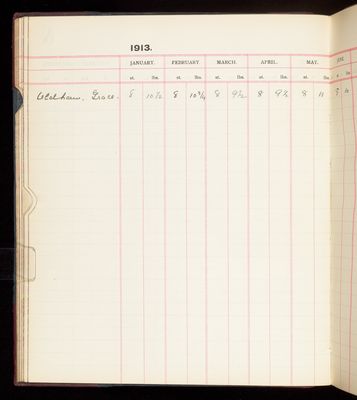 1913.
JANUARY. FEBRUARY. MARCH. APRIL. MAY. JUNE.
st. lbs. st. lbs. st. lbs. st. lbs. st. lbs. st. lbs.
Oldham, Grace. 8 10½ 8 10¾ 8 9½ 8 9½ 8 11